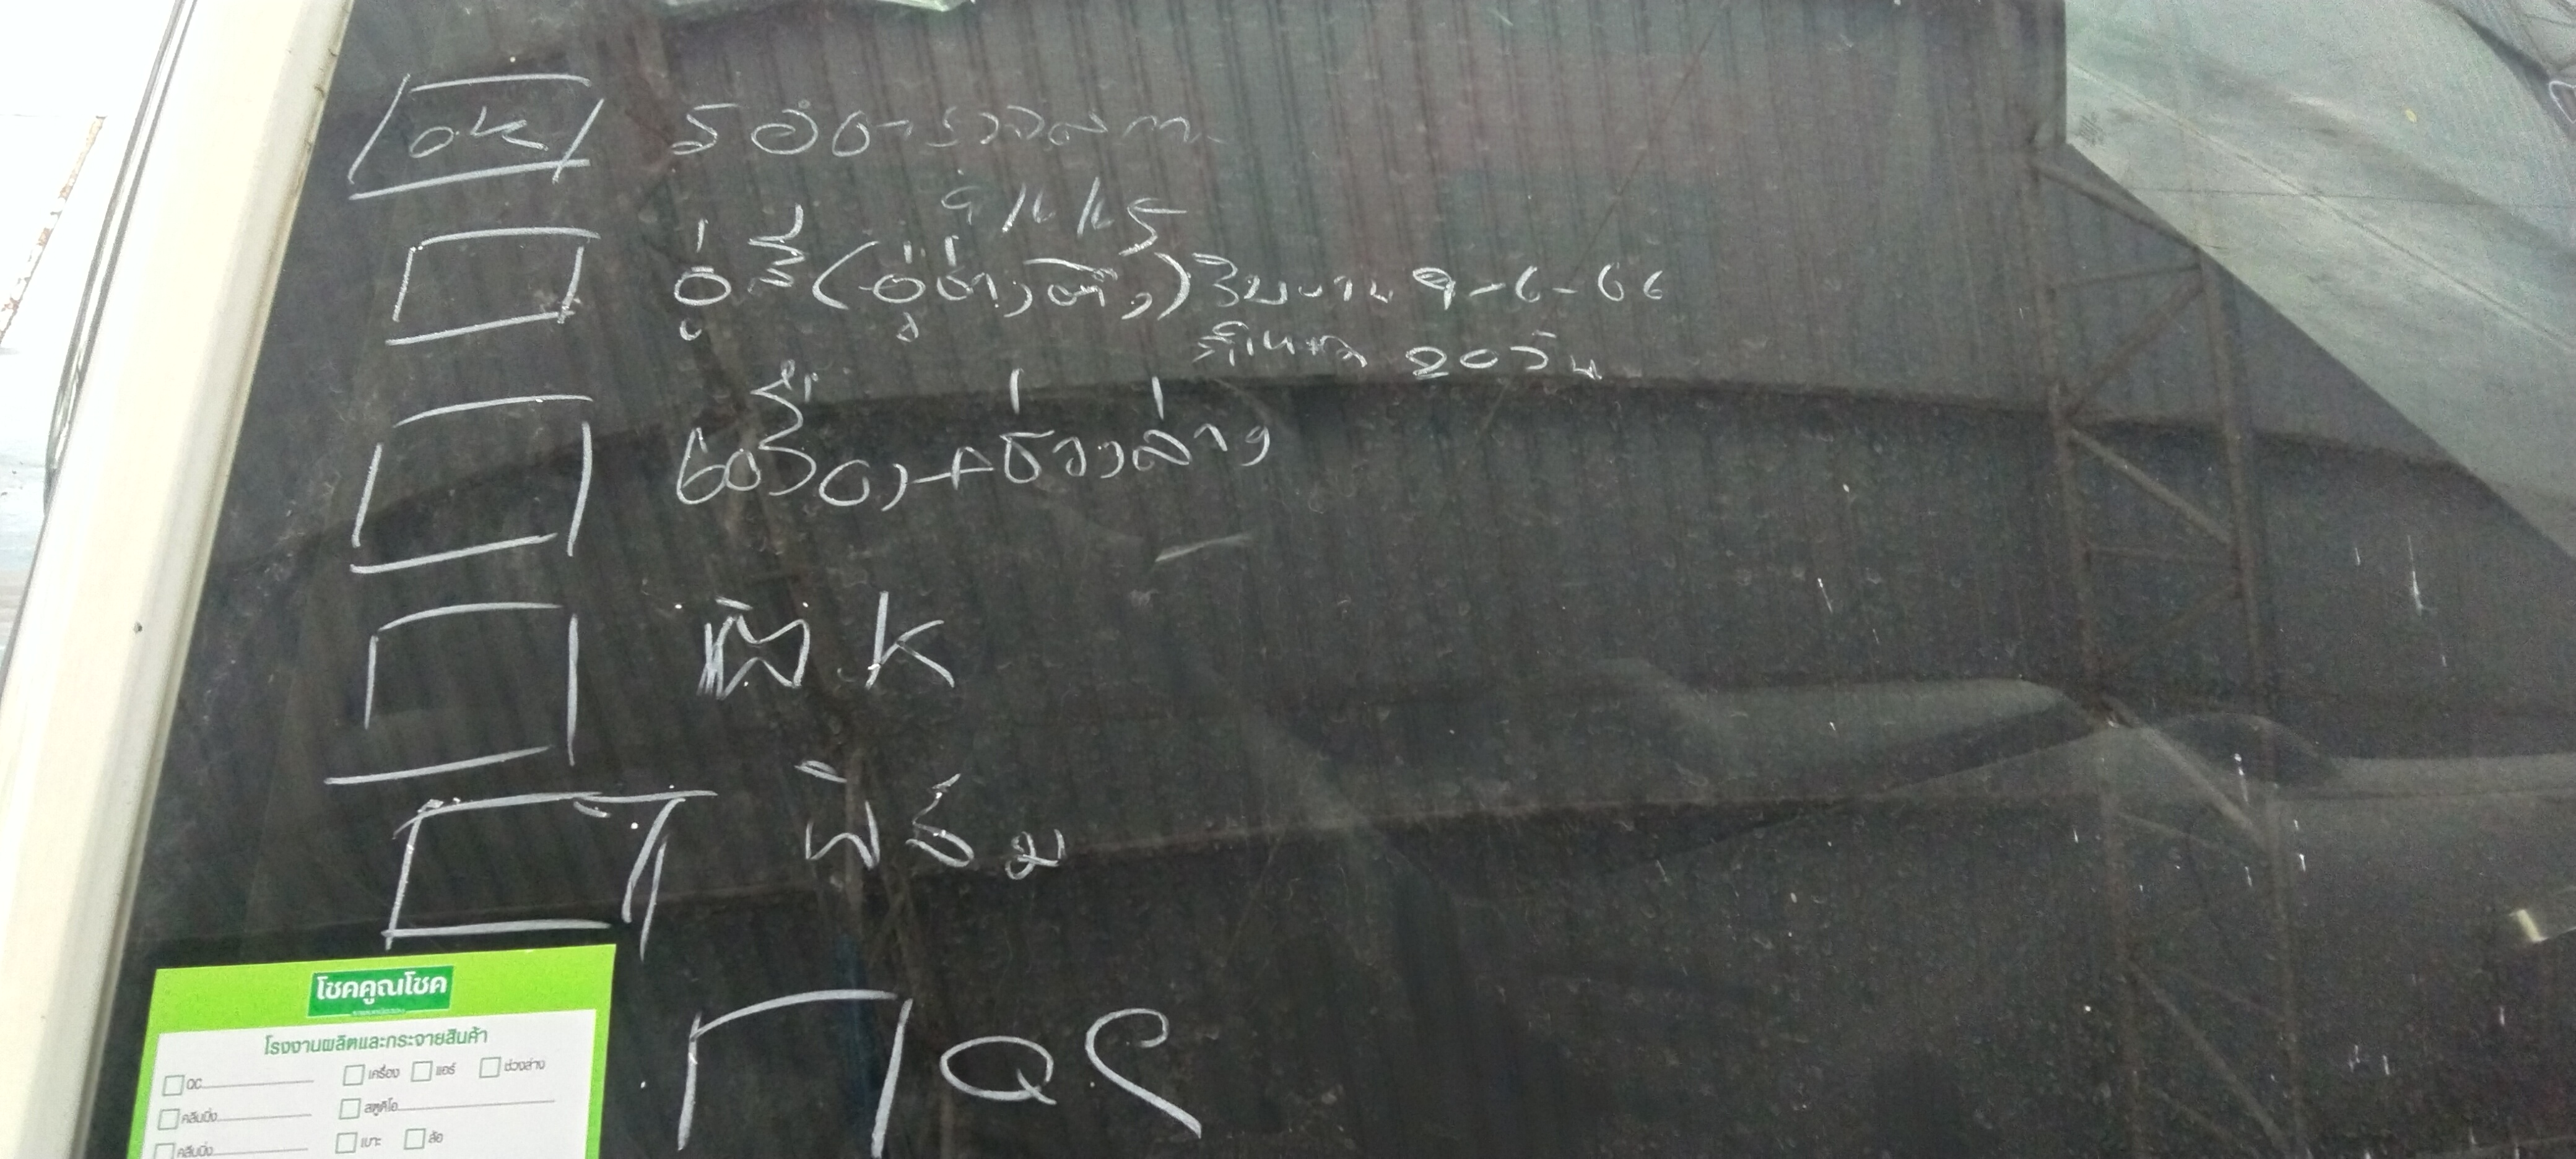 ok รอตรวจสภาพ
9/6/65
อู่สี (อู่ช่างต้อง) รับงาน 9-6-66
20 วัน
เครื่อง-ช่วงล่าง
K
ฟิล์ม
QC
โชคคูณโชค
โรงงานผลิตและกระจายสินค้า
QC เครื่อง แอร์ ช่วงล่าง
คลีนนิ่ง สตูดิโอ
คลีนนิ่ง เบาะ ล้อ